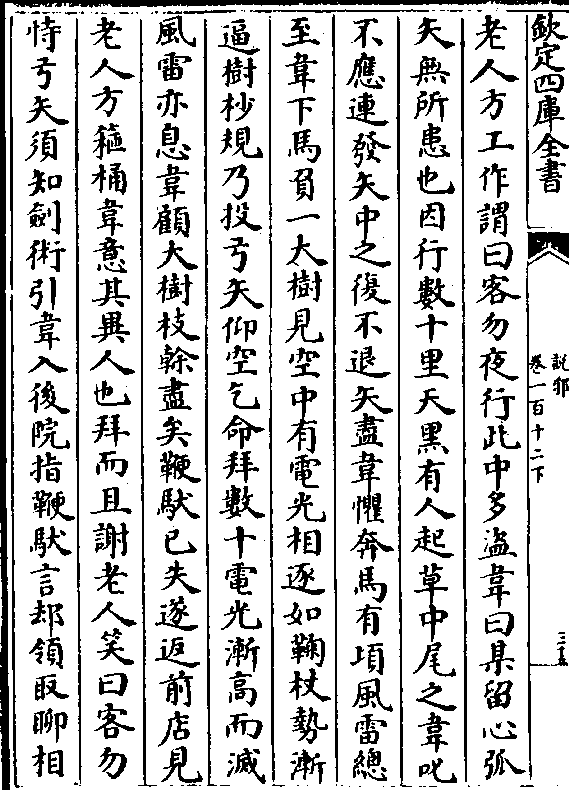 欽定四庫全書
說郛
卷一百十二下
老人方工作謂曰客勿夜行此中多盜韋曰某留心弧
矢無所患也因行數十里天黑有人起草中尾之韋叱
不應連發矢中之復不退矢盡韋懼奔馬有頃風雷總
至韋下馬負一大樹見空中有電光相逐如鞠杖勢漸
逼樹杪規乃投弓矢仰空乞命拜數十電光漸高而滅
風雷亦息韋顧大樹枝榦盡矣鞭馱已失遂返前店見
老人方箍桶韋意其異人也拜而且謝老人笑曰客勿
恃弓矢須知劍術引韋入後院指鞭馱言却領取聊相